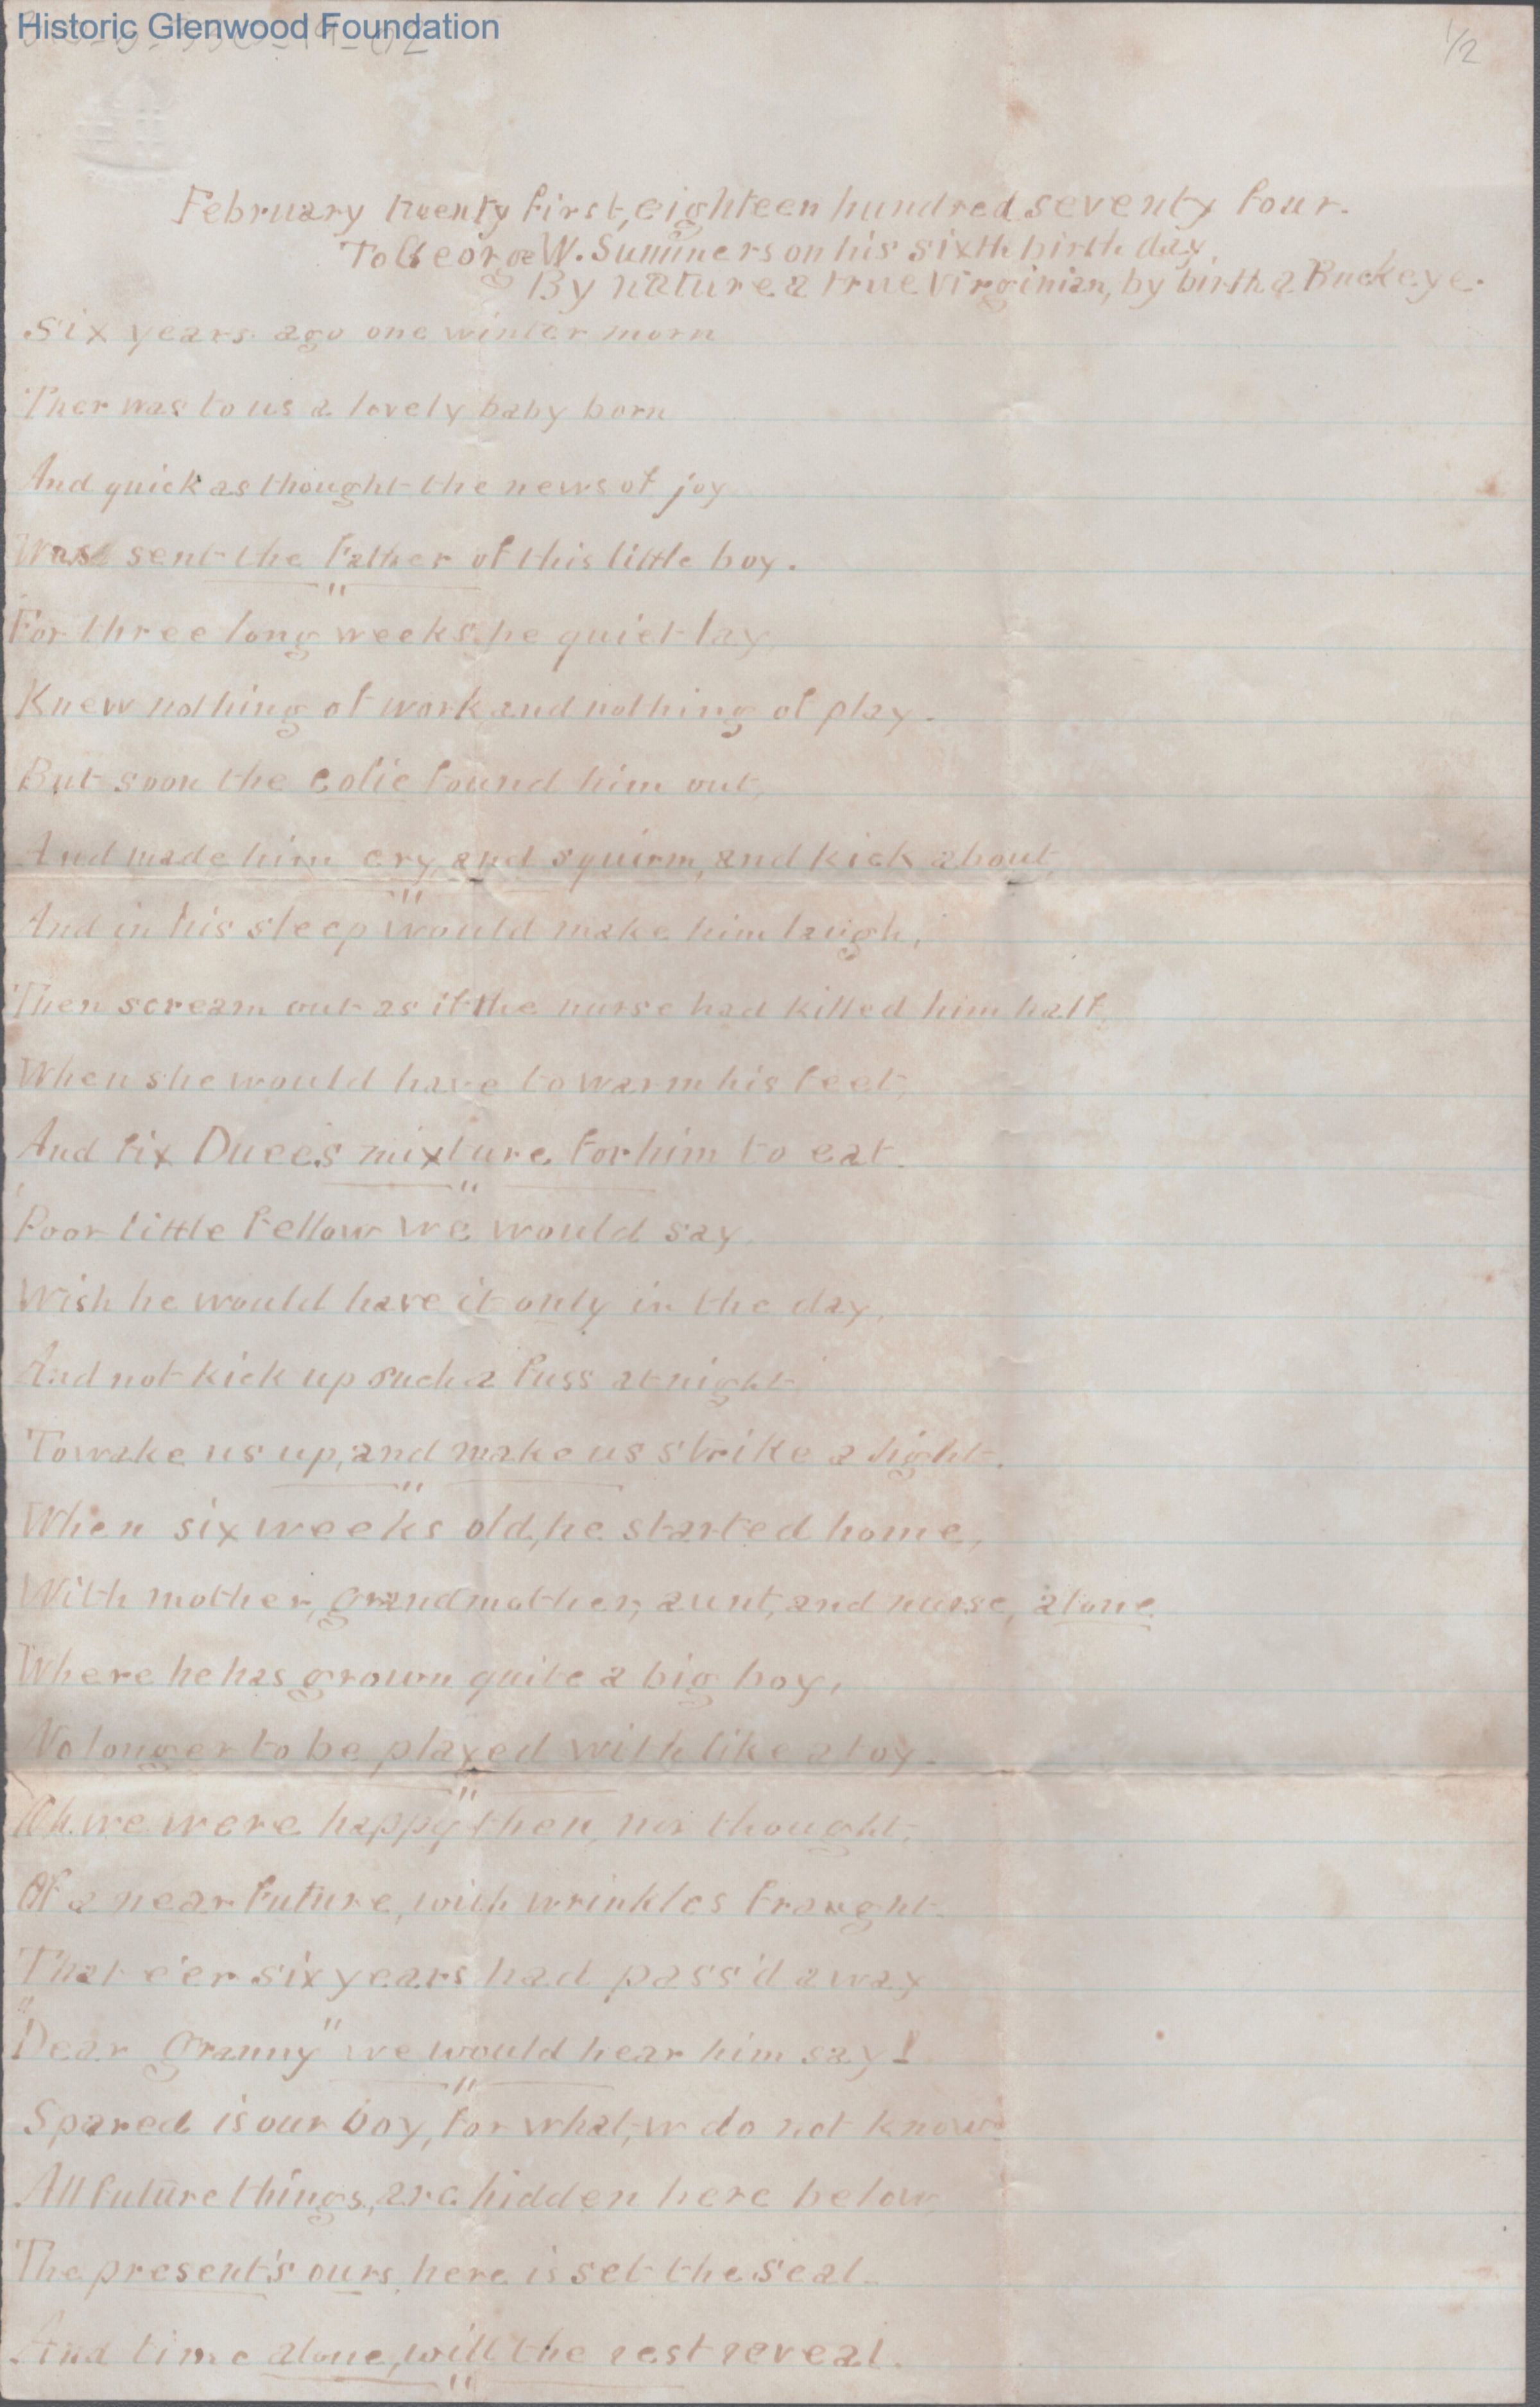 Historic Glenwood Foundation
1/2
February twenty first, eighteen hundred seventy four.
To George W. Summers on his sixth birth day,
By nature a true Virginian, by birth a Buckeye.
Six years ago one winter morn
Ther was to us a lovely baby born
And quick as thought the news of joy
Was sent the Father of this little boy.
"
For three long weeks, he quiet lay,
Knew nothing of work, and nothing of play.
But soon the colic found him out,
And made him cry, and squirm, and kick about,
"
And in his sleep would make him laugh,
Then scream out as if the nurse had killed him half.
When she would have to warm his feet,
And fix Duees mixture for him to eat.
"
Poor little fellow we would say.
Wish he would have it only in the day,
And not kick up such a fuss at night,
To wake us up, and make us strike a light.
"
When six weeks old, he started home,
With mother, grandmother, aunt, and nurse, alone.
Where he has grown quite a big boy,
No longer to be played with like a toy.
"
Oh. we were happy then, nor thought,
Of a near future, with wrinkles fraught.
That e'er six years had pass'd away
"Dear Granny" we would hear him say!
"
Spared is our boy, for what, w do not know
All future things, are hidden here below,
The present's ours, here is set the seal.
And time alone, will the rest reveal.
"